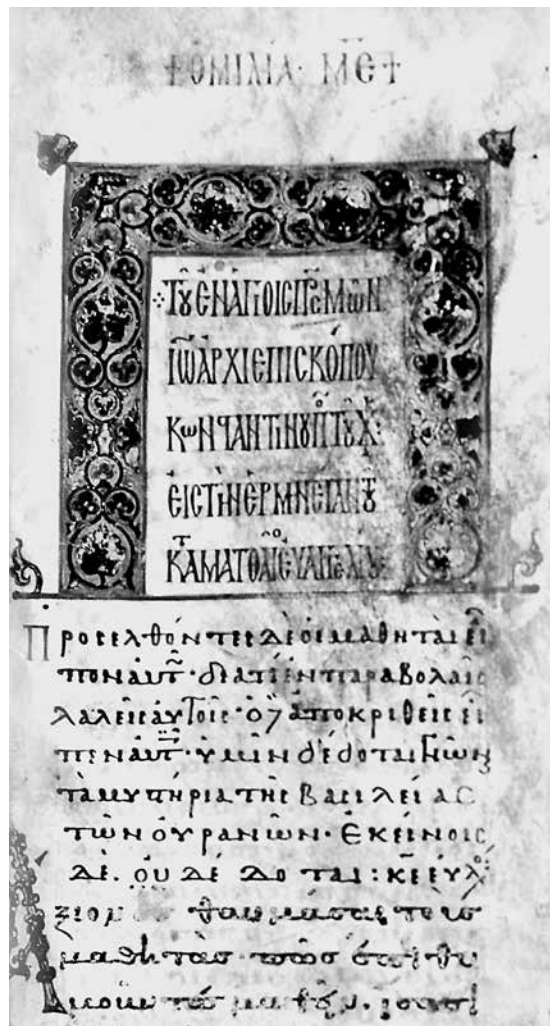 †ΟΜΙΛΙΑ· ΜΕ†
ΤȢ ΕΝ ΑΓΙΟΙΣ ΠΡΣ ΗΜΩΝ
ΙΩ ΑΡΧΙΕΠΙΣΚΟΠΟΥ
ΚΩΝϚΑΝΤΙΝȢΠ ΤȢ ΧΡ:
ΕΙΣ ΤΗΝ ΕΡΜΝΕΙΑΝ ΤȢ
ΚΑΤ ΜΑΤΘΑΙΟ ΕΥΑΓΓΕΛΙȢ
Προσελθόντες δὲ οἱ μαθηταὶ εἶ
πον αὐτ· διατί ἐν παραβολαῖς
λαλεῖς αὐτοῖς· ὁ δ ἀποκριθεὶς εἶ
πεν αὐτ· ὑμῖν δέδοται γνῶν
τὰ μυϛήρια τῆς βασιλείας
τῶν οὐρανῶν· ἐκείνοις
δὲ. οὐ δέδοται:
θαυμάσαι τοὺς
μαθητὰς πῶς ἐπιθυ